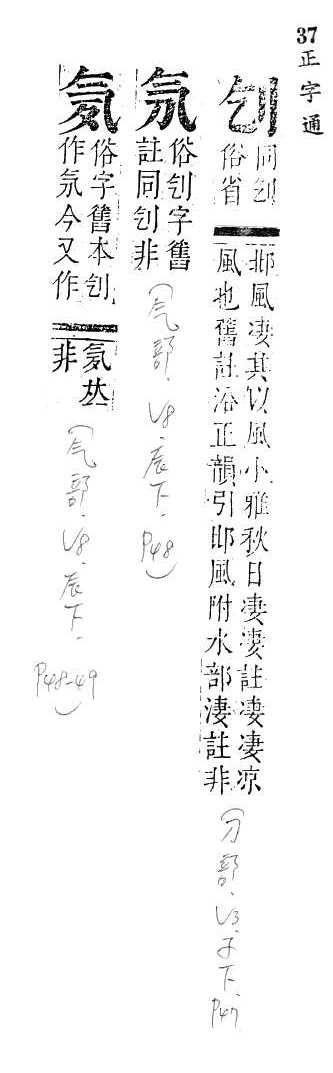 37
正字通
刏
同刉
俗省
邶風淒其以風小雅秋日淒淒註淒淒凉
風也舊註沿正韻引邶風附水部淒註非
(刀部．V3．子下．P47)
俗刉字舊
註同刉非
(气部．V8．辰下．P48)
俗字舊本刉
作氖今又作
𠀤
非
(气部．V8．辰下．P48-49)